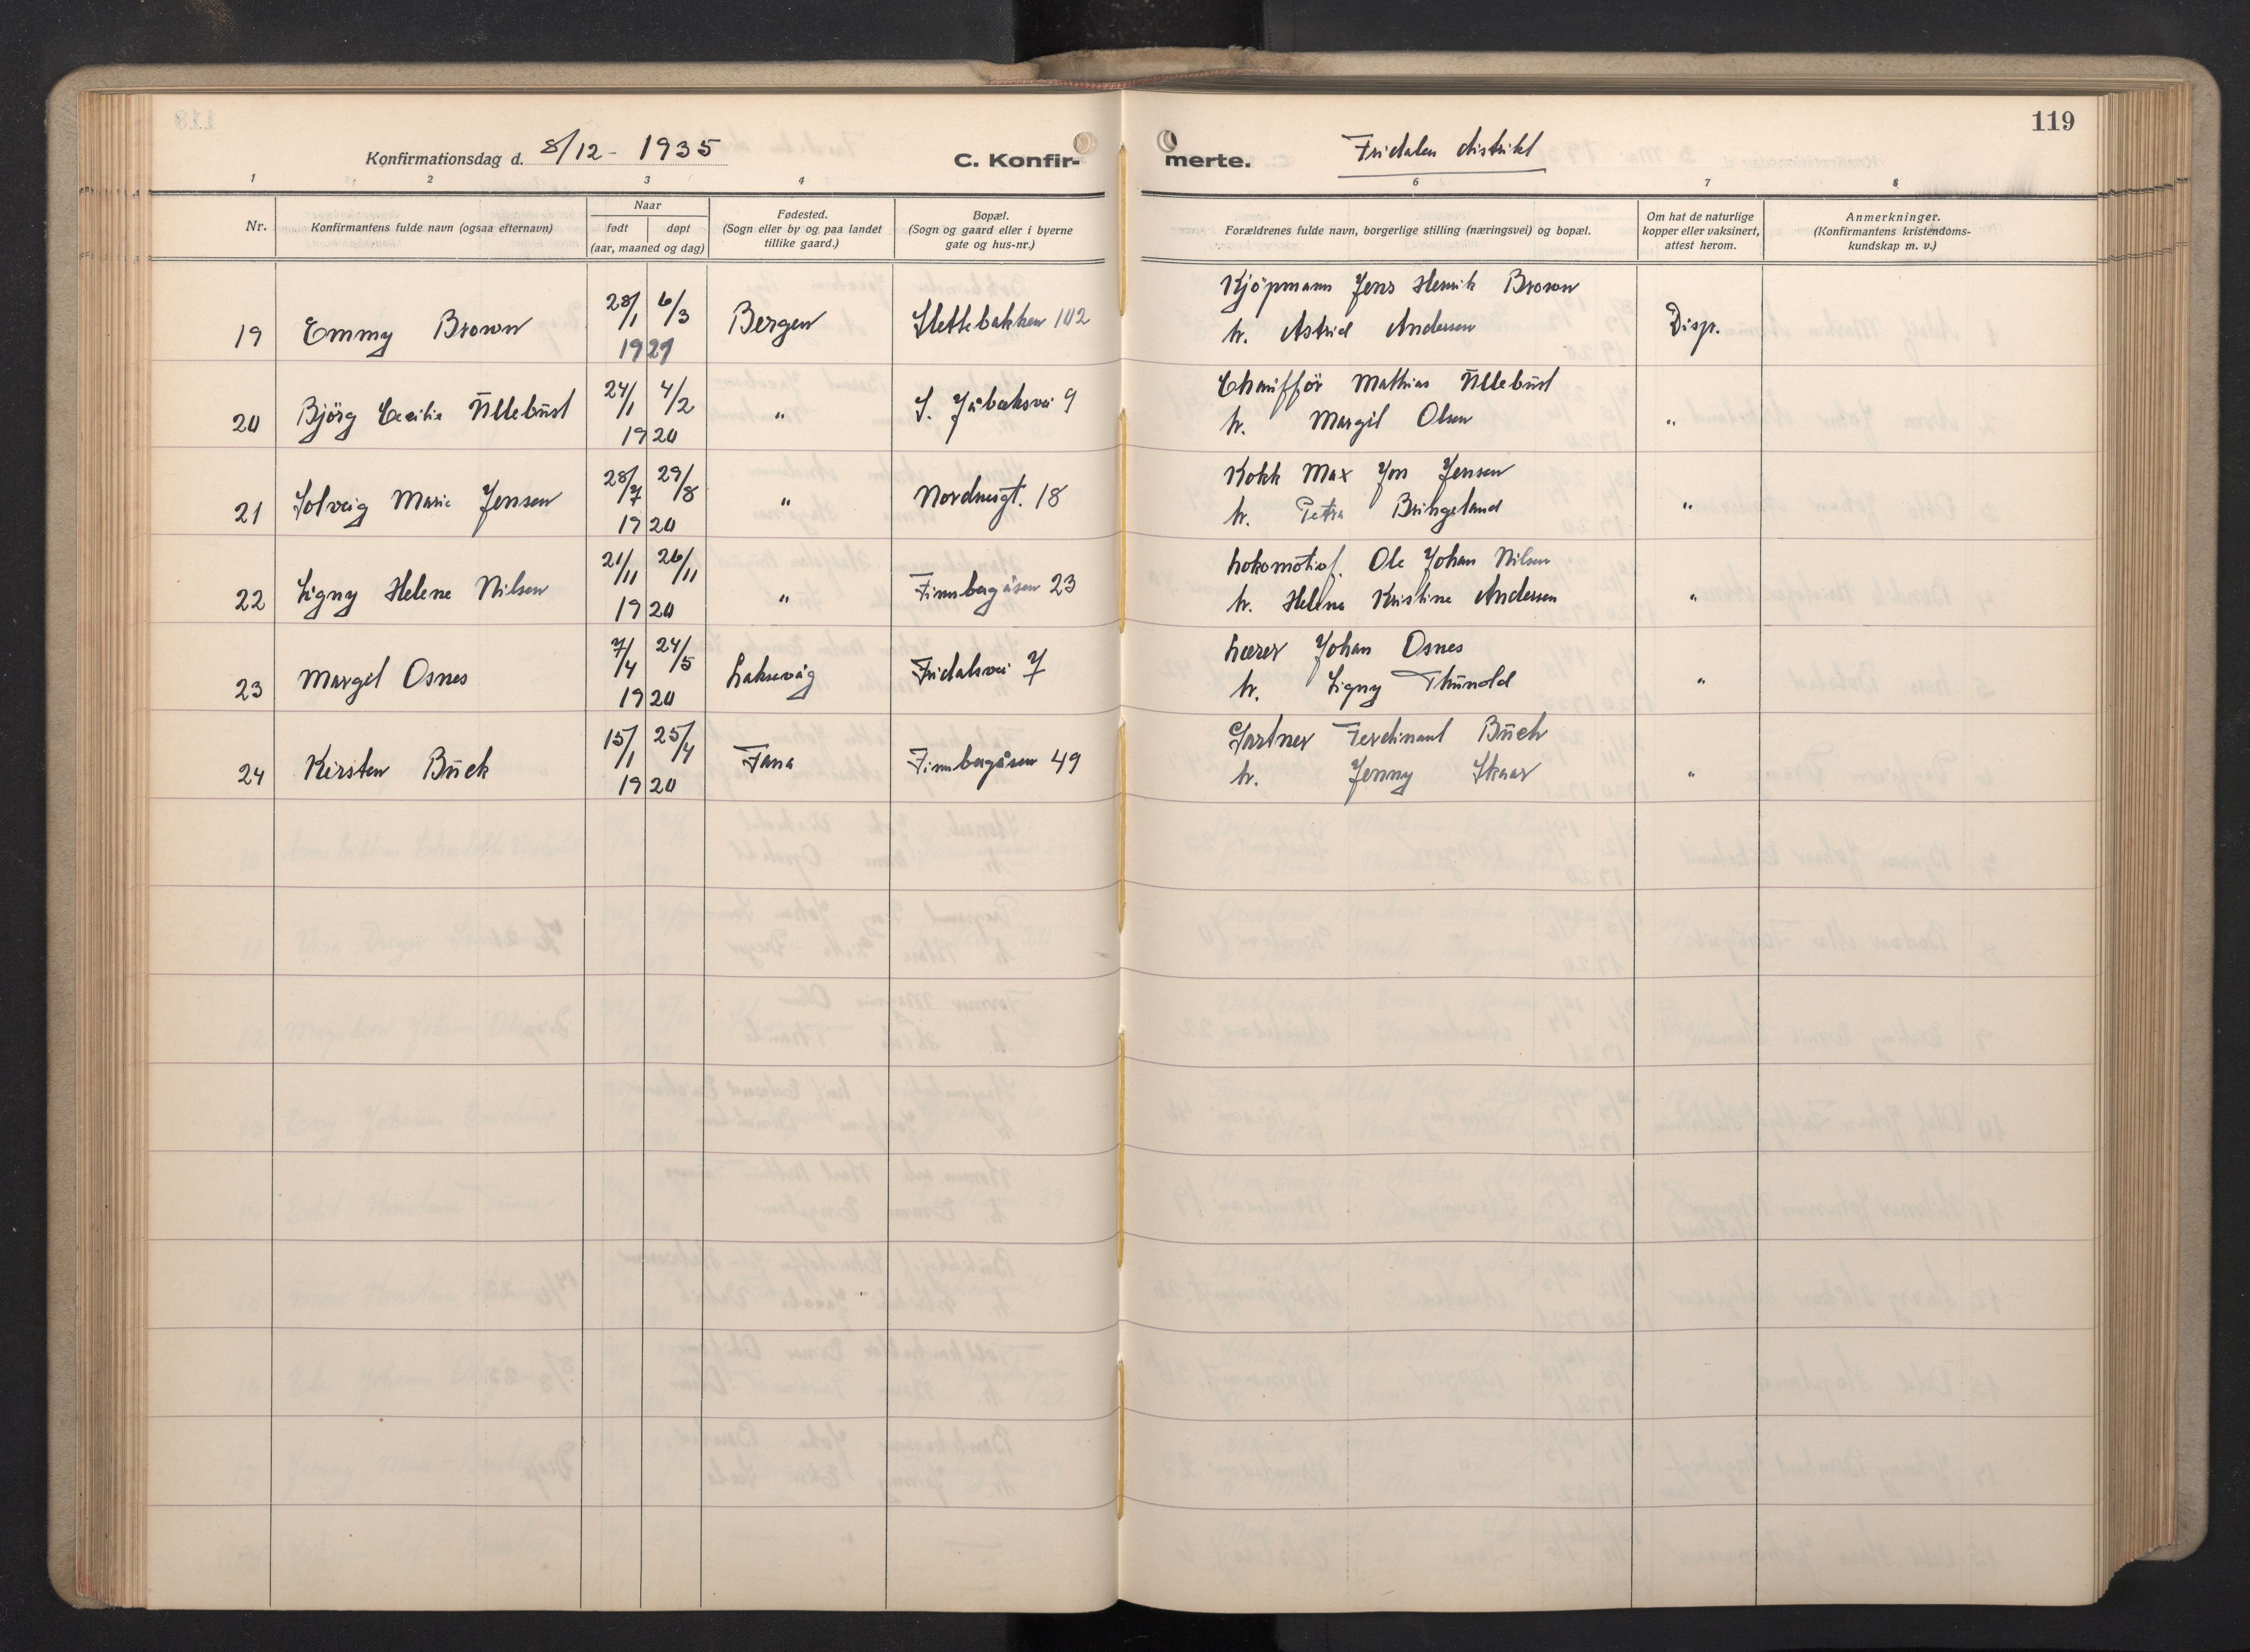 119
Konfirmationsdag d. 8/12 - 1935
C. Konfir-
merte.
Fridalen distrikt
1 2 3 4 6 7 8
Nr.
Konfirmantens fulde navn (ogsaa efternavn)
Naar
født døpt
(aar, maaned og dag)
Fødested.
(Sogn eller by og paa landet
tillike gaard.)
Bopæl.
(Sogn og gaard eller i byerne
gate og hus-nr.)
Forældrenes fulde navn, borgerlige stilling (næringsvei) og bopæl.
Om hat de naturlige
kopper eller vaksinert,
attest herom.
Anmerkninger.
(Konfirmantens kristendoms-
kundskap m. v.)
Kjöpmann Jens Henrik Brown
19 Emmy Brown 28/1 6/3 Bergen Slettebakken 102 h. Astrid Andersen Disp.
1921
Chaufför Mathias Ūllebūst
20 Björg Cecilie Ūllebūst 24/1 4/2 " 9 h. Margit Olsen "
1920
Kokk Max Jon Jensen
21 Solveig Marie Jensen 28/7 29/8 " Nordnesgt. 18 h. Petra Bringeland "
1920
Lokomotivf. Ole Johan Nilsen
22 Signy Helene Nilsen 21/11 26/11 " Finnbergåsen 23 h. Helene Kristine Andersen "
1920
Lærer Johan Osnes
23 Margit Osnes 7/4 24/5 Laksevåg Fridalsvei 7 h. Signy Thūnold "
1920
Gartner Ferdinant Būch
24 Kirsten Būch 15/1 25/4 Fana Finnbergåsen 49 h. Jenny Skaar "
1920